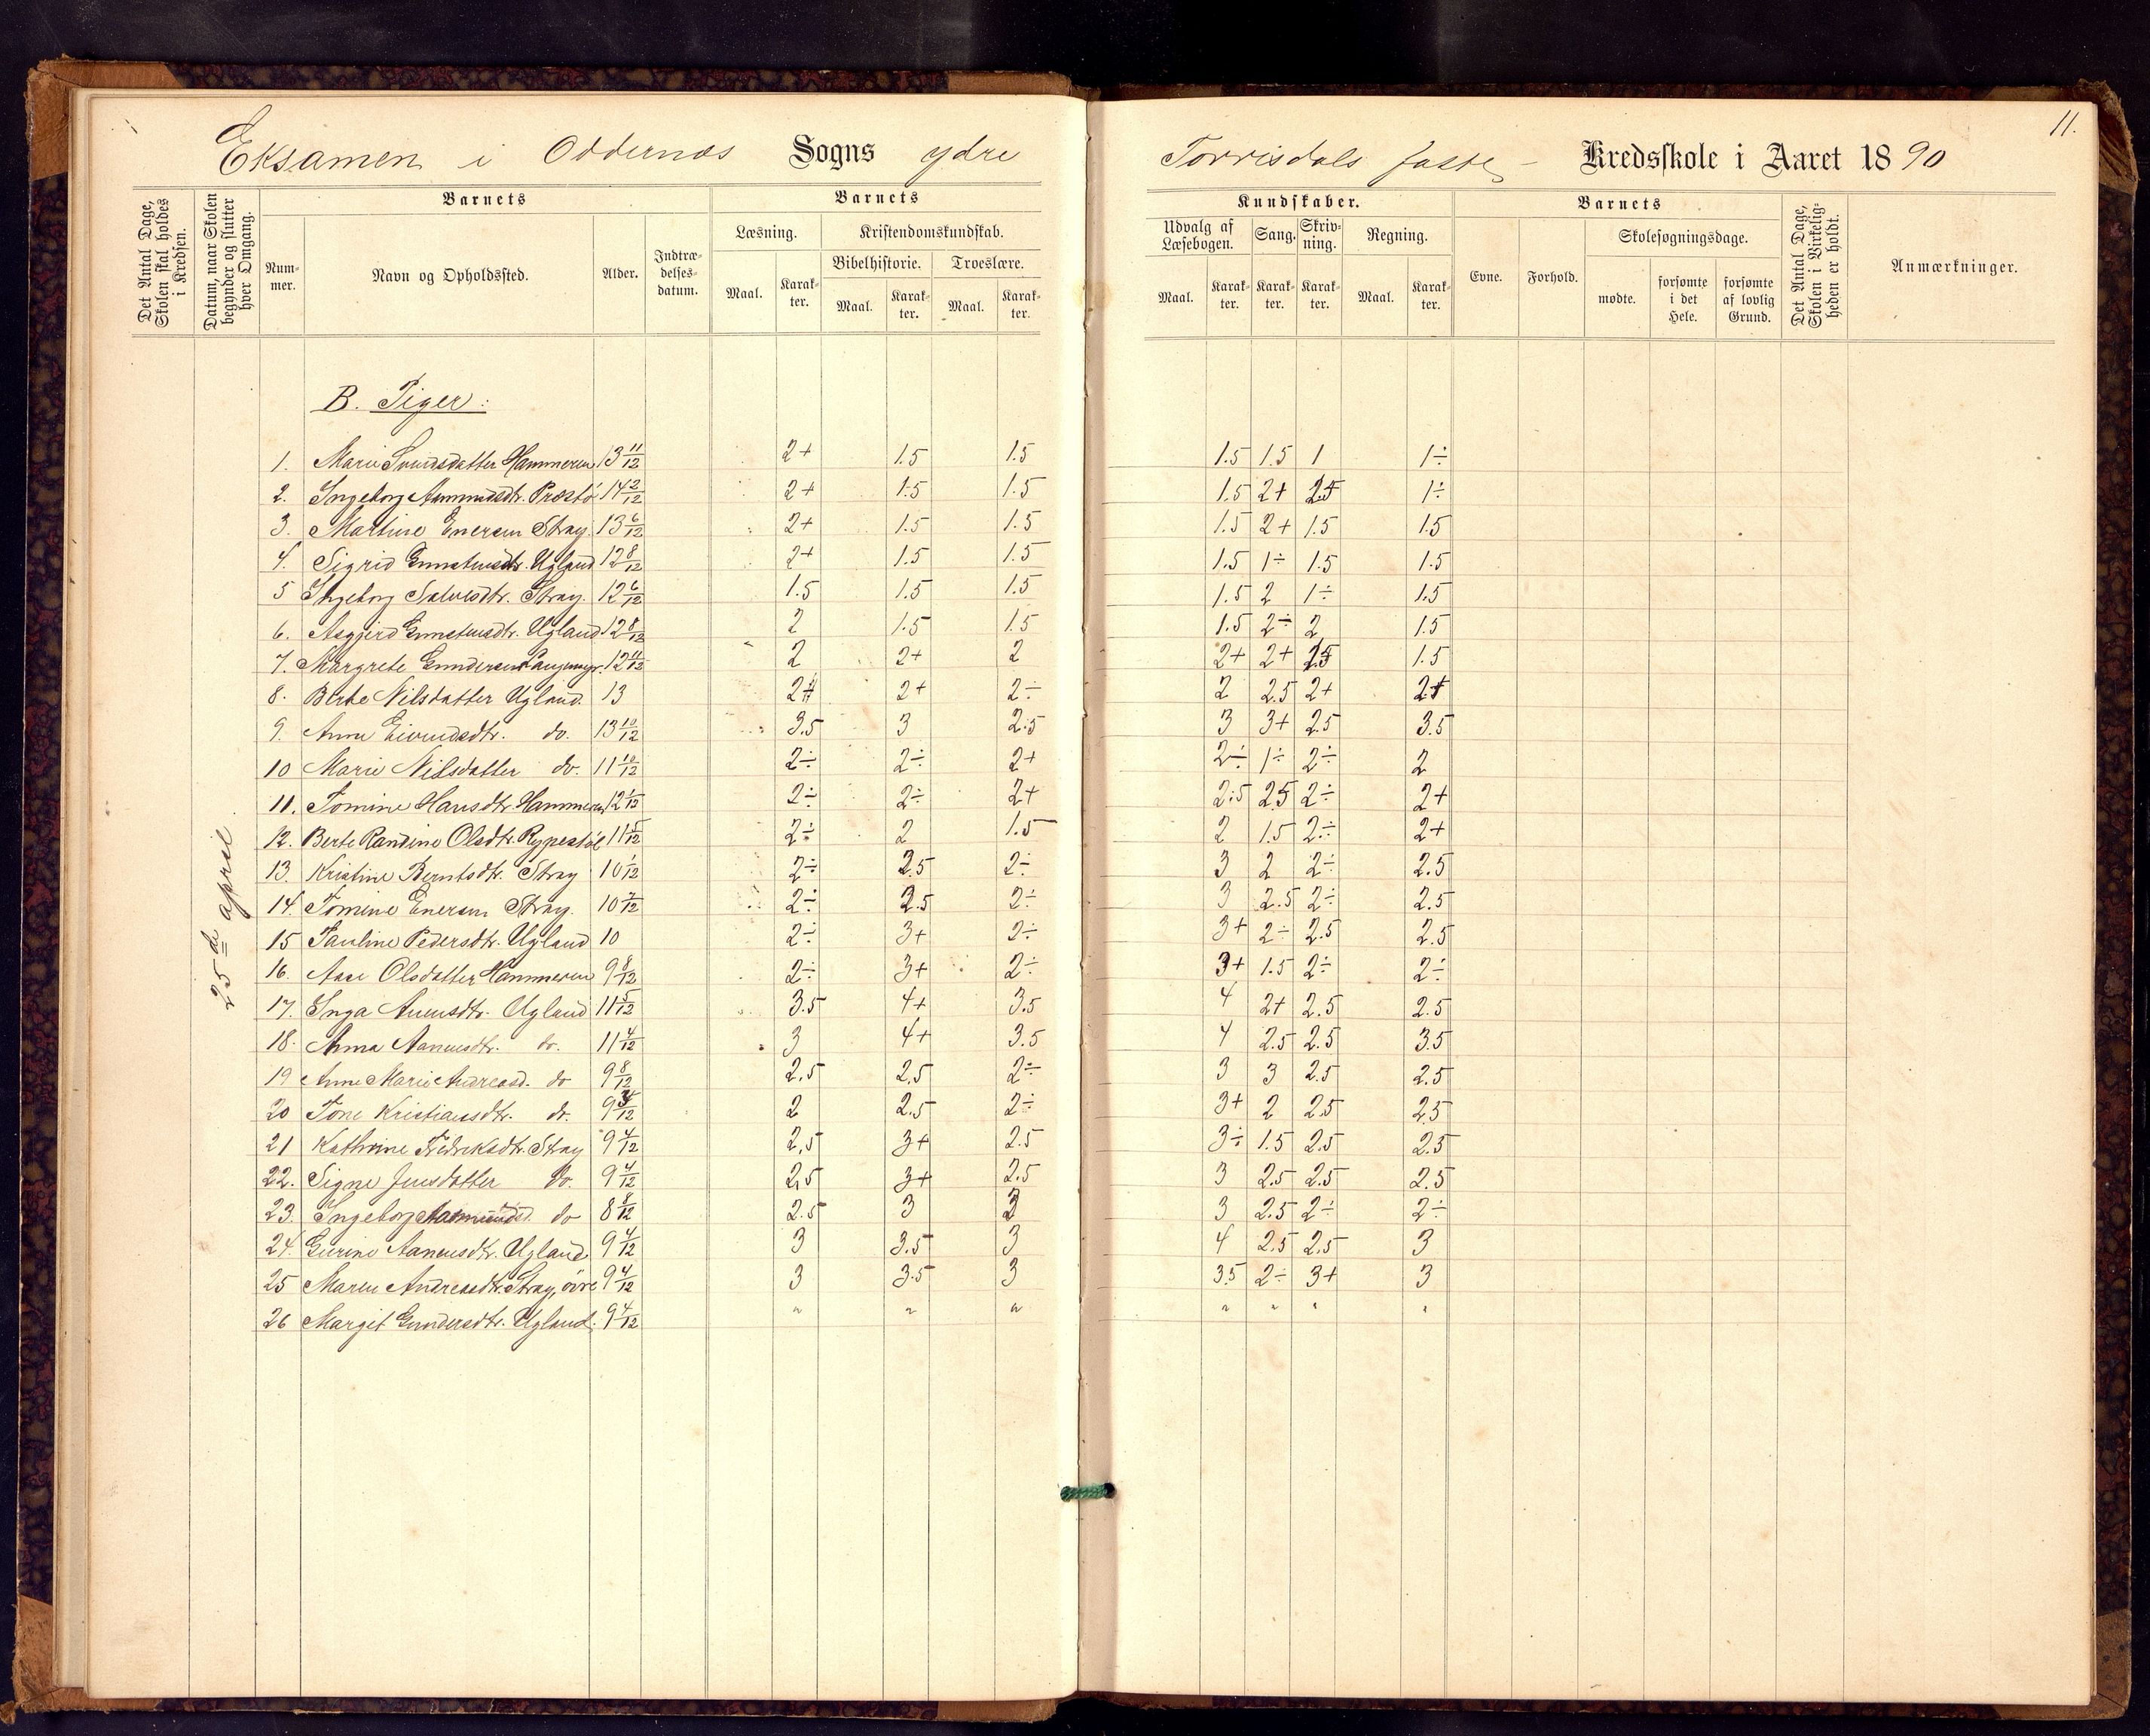 11.
Eksamen i Oddernæs Sogns ydre Torrisdals faste Kredsskole i Aaret 1890
Det Antal Dage, Skolen skal holdes i Kredsen.
Datum, naar Skolen begynder og slutter hver Omgang.
Barnets
Nummer.
Navn og Opholdssted.
Alder.
Indtrædelsesdatum.
Barnets
Læsning.
Kristendomskundskab.
Bibelhistorie.
Troeslære.
Maal. Karakter. Maal. Karakter. Maal. Karakter.
Kundskaber.
Udvalg af Læsebogen.
Sang.
Skrivning.
Regning.
Maal. Karakter. Karakter. Karakter. Maal. Karakter.
Barnets
Evne.
Forhold.
Skolesøgningsdage.
mødte.
forsømte i det Hele.
forsømte af lovlig Grund.
Det Antal Dage, Skolen i Virkeligheden er holdt.
Anmærkninger.
25de april.
B. Piger:
1. Marie Svendsdatter Hammeren 13 11/12 2+ 1.5 1.5 1.5 1.5 1 1÷
2. Ingeborg Aamundsdtr. Præstø 14 2/12 2+ 1.5 1.5 1.5 2+ 1÷
3. Martine Enersen Stray. 13 6/12 2+ 1.5 1.5 1.5 2+ 1.5 1.5
4. Sigrid Gunstensdtr. Ugland 12 8/12 2+ 1.5 1.5 1.5 1÷ 1.5 1.5
5 Ingeborg Salvesdtr. Stray. 12 6/12 1.5 1.5 1.5 1.5 2 1÷ 1.5
6. Asgjerd Gunstensdtr. Ugland 12 8/12 2 1.5 1.5 1.5 2÷ 2 1.5
7. Margrete Gundersen Langemyr. 12 11/12 2 2+ 2 2+ 2+ 1.5
8. Berte Nilsdatter Ugland. 13 2+ 2÷ 2 2.5 2+ 2+
9. Anna Eivindsdtr. do. 13 10/12 3.5 3 2.5 3 3+ 2.5 3.5
10 Marie Nilsdatter do. 11 10/12 2÷ 2÷ 2+ 2÷ 1÷ 2÷ 2
11. Tomine Hansdtr. Hammeren 12 1/12 2÷ 2÷ 2+ 2.5 2.5 2÷ 2+
12. Berte Randine Olsdtr. Rypestøl 11 5/12 2÷ 2 1.5 2 1.5 2÷ 2+
13. Kristine Berntsdtr. Stray 10 1/12 2÷ 2.5 2÷ 3 2 2÷ 2.5
14. Tomine Enersen Stray. 10 7/12 2÷ 2.5 2÷ 3 2.5 2÷ 2.5
15 Pauline Pedersdtr. Ugland 10 2÷ 3+ 2÷ 3+ 2÷ 2.5 2.5
16. Aase Olsdatter Hammeren 9 8/12 2÷ 3+ 2÷ 3+ 1.5 2÷ 2÷
17. Inga Anensdtr. Ugland 11 5/12 3.5 4+ 3.5 4 2+ 2.5 2.5
18. Anna Aanensdtr. do. 11 4/12 3 4+ 3.5 4 2.5 2.5 3.5
19 Anne Marie Andreasd. do 9 8/12 2,5 2,5 2÷ 3 3 2.5 2.5
20 Tone Kristiansdtr. do. 2 2.5 2÷ 3+ 2 2.5 2.5
21 Kathrine Fredriksdtr. Stray 9 4/12 2,5 3+ 2.5 3÷ 1.5 2.5 2.5
22. Signe Jensdatter do. 9 4/12 2,5 3+ 2.5 3 2.5 2.5 2.5
23. Ingeborg Aamundsd. do 8 8/12 2.5 3 3 3 2.5 2÷ 2÷
24. Gurine Aanensdtr. Ugland 9 4/12 3 3.5 3 4 2.5 2.5 3
25 Maren Andreasdtr. Stray, øvre 9 4/12 3 3.5 3 3.5 2÷ 3+ 3
26 Margit Gundersdtr. Ugland. 9 4/12 " " " " " " "